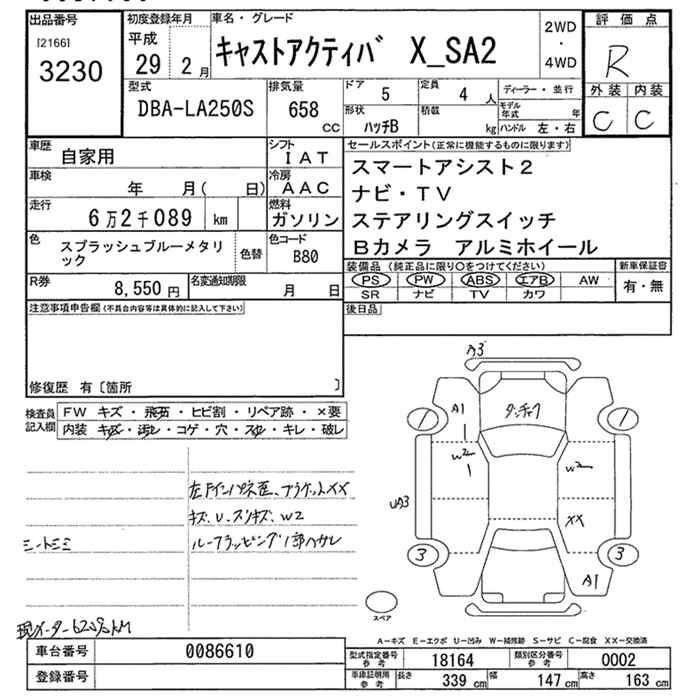 出品番号
[2166]
3230
初度登録年月
平成
29 2月
車名・グレード
キャストアクティバ X_SA2
2WD
・
4WD
評価点
R
外装 内装
C C
型式
DBA-LA250S
排気量
658
CC
ドア 5
定員 4 人
形状
ハッチB
積載
kg
ディーラー・並行
モデル年式 年
ハンドル 左・右
車歴
自家用
シフト
IAT
車検
年 月( 日)
冷房
AAC
走行
6万2千089 km
燃料
ガソリン
色
スプラッシュブルーメタリック
色替
色コード
B80
R券
8,550 円
名変通知期限
月 日
セールスポイント(正常に機能するものに限ります)
スマートアシスト2
ナビ・TV
ステアリングスイッチ
Bカメラ アルミホイール
装備品(純正品に限り○をつけてください)
PS PW ABS エアB AW
SR ナビ TV カワ
新車保証書
有・無
後日品
注意事項申告欄(不具合内容等は具体的に記入して下さい)
修復歴 有〔箇所 〕
検査員記入欄
FW キズ・飛石・ヒビ割・リペア跡・×要
内装 キズ・汚レ・コゲ・穴・スレ・キレ・破レ
XX
キズ、U、スリキズ、W2
ルーフラッピング1部ハガレ
A3
A1
W2
UA3
W2
XX
A1
1
1
3
3
スペア
A-キズ E-エクボ U-凹み W-補修跡 S-サビ C-腐食 XX-交換済
車台番号
0086610
登録番号
型式指定番号 参考
18164
類別区分番号 参考
0002
車庫証明用 参考
長さ 339 cm
幅 147 cm
高さ 163 cm